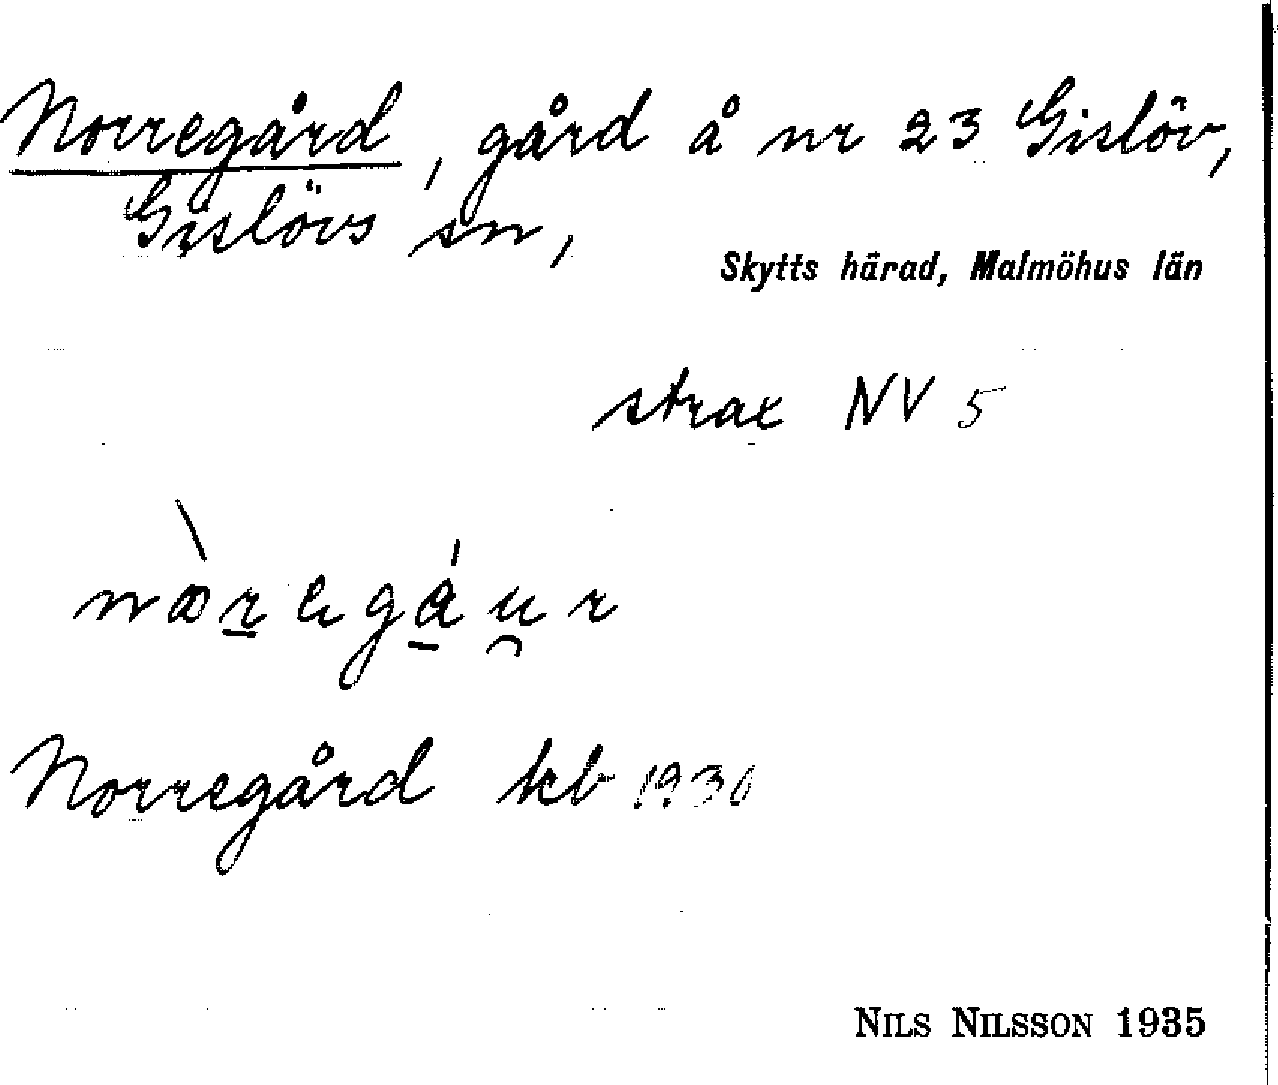 Norregård, gård å nr 23 Gislöv,
Gislövs sn,
Skytts härad, Malmöhus län
strax NV 5
Norregård kb 1930
NILS NILSSON 1935